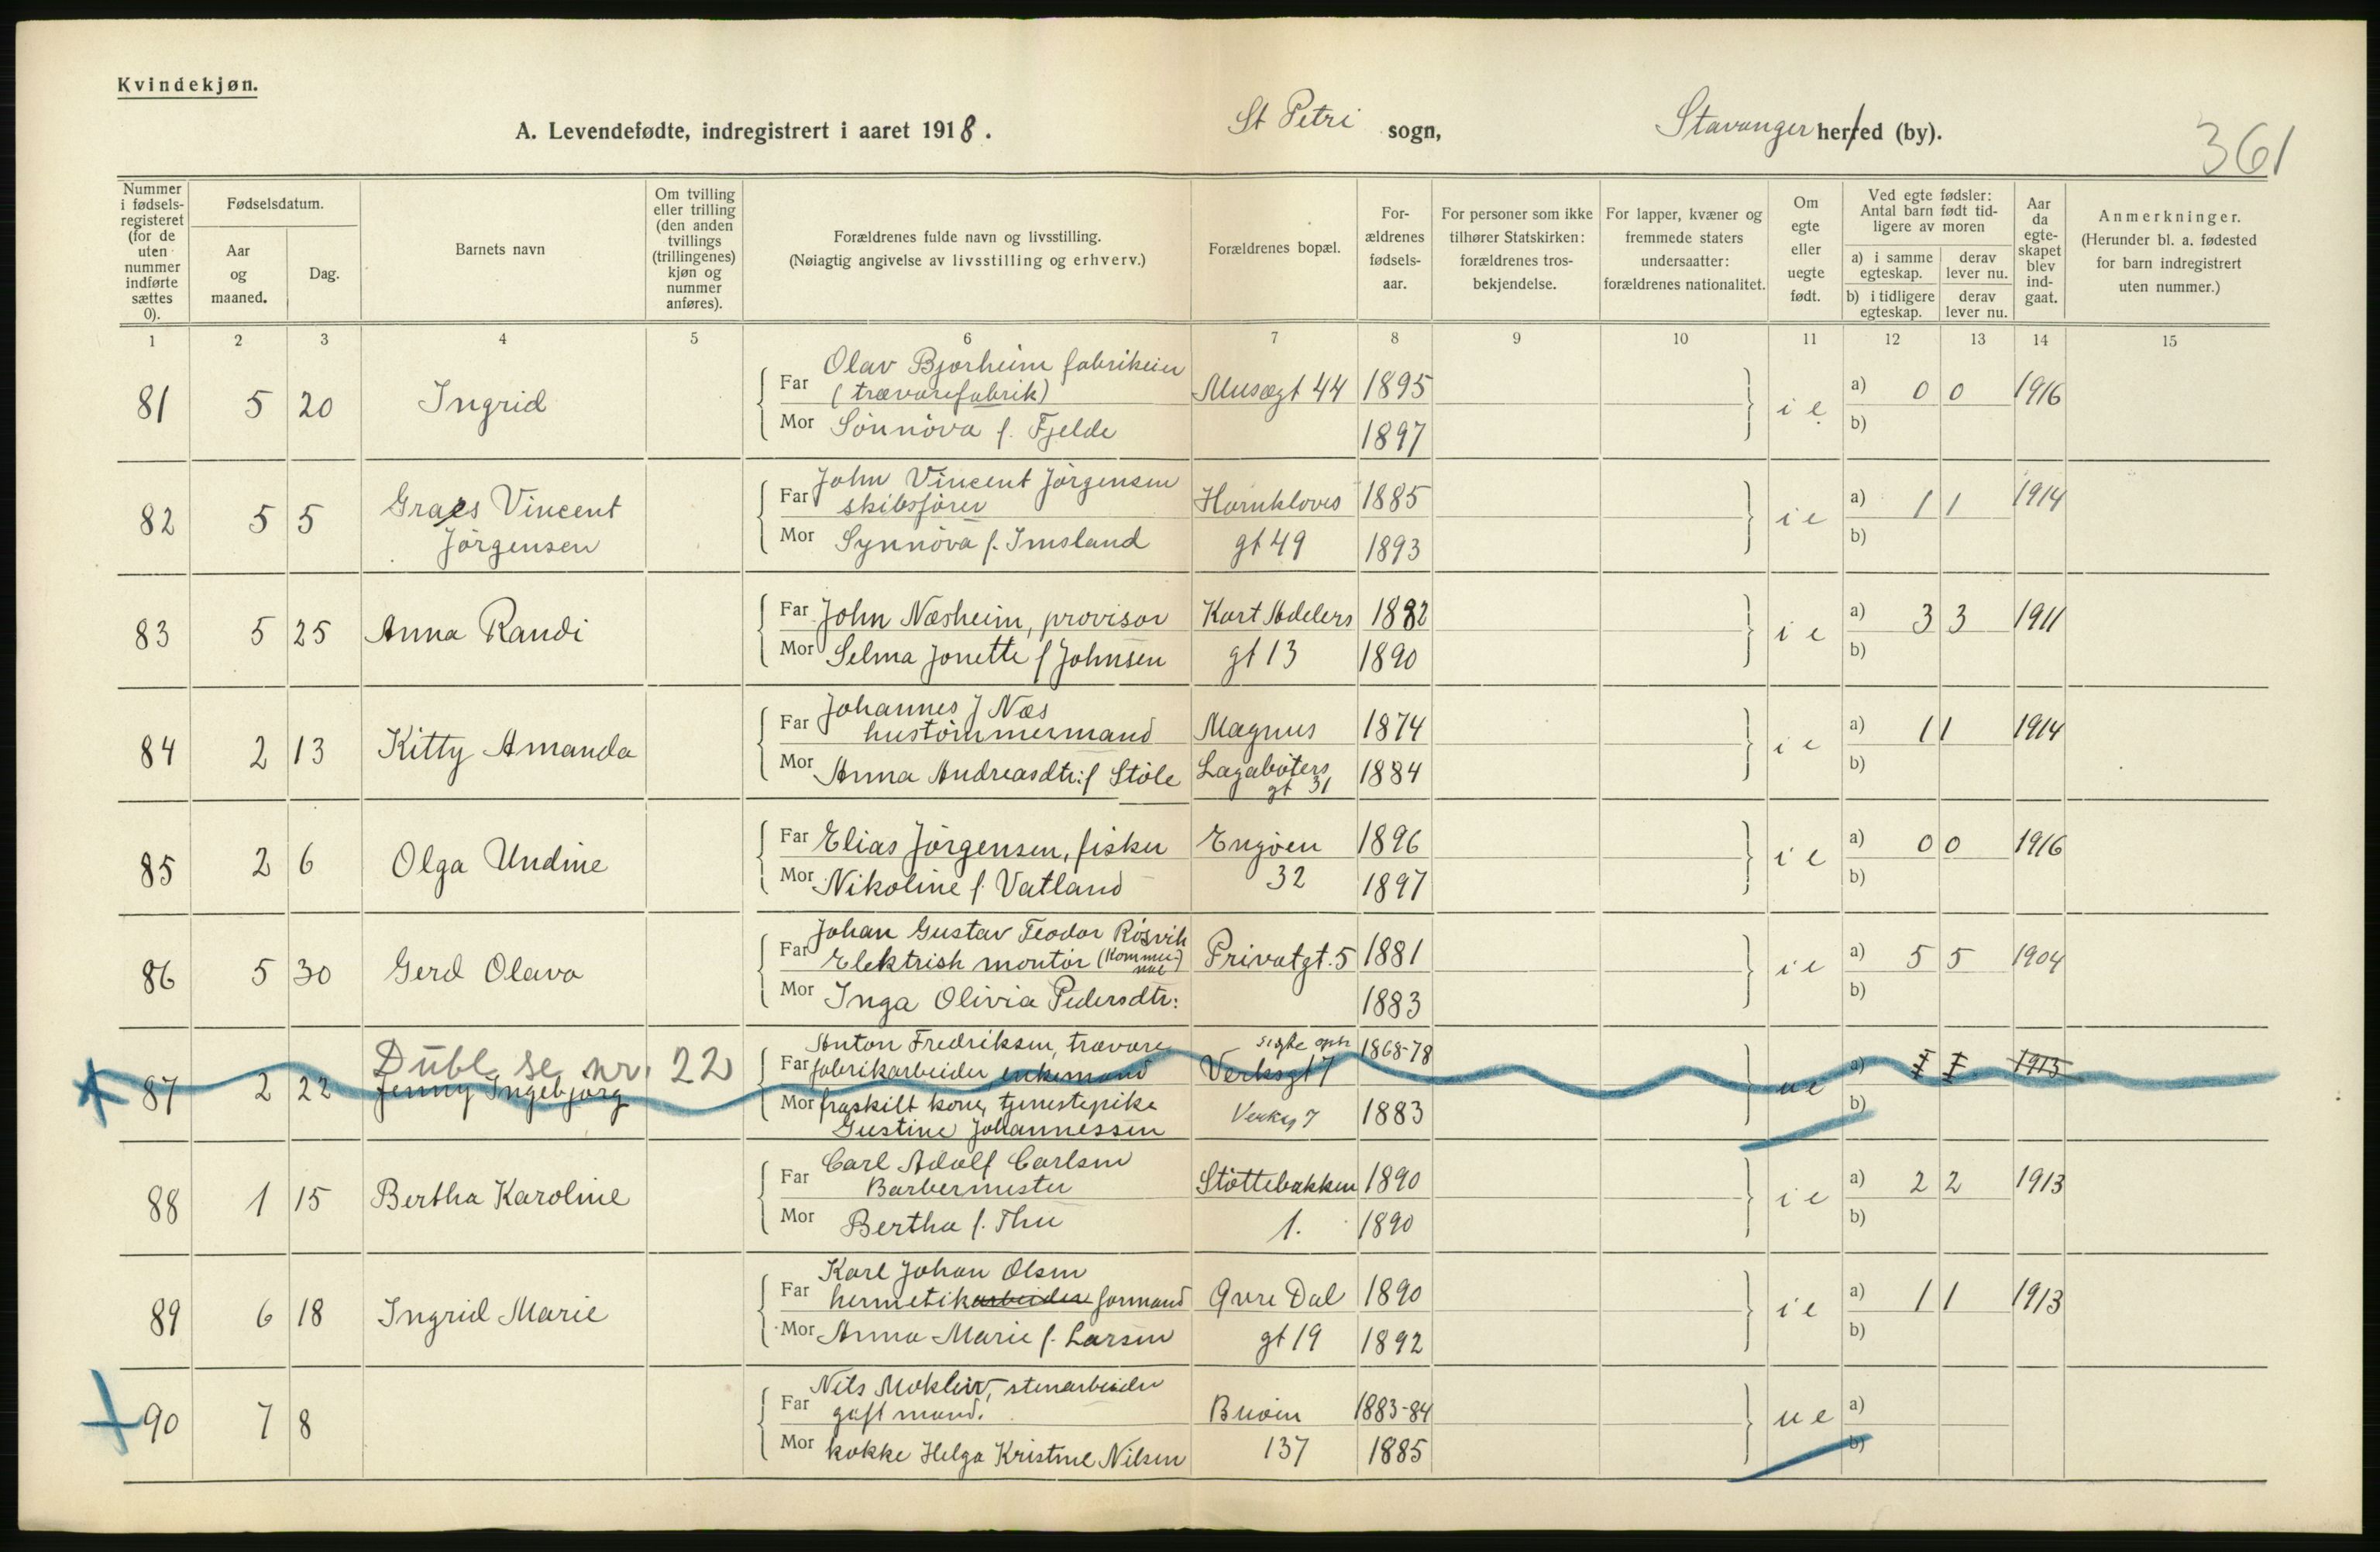 Kvindekjøn.
A. Levendefødte, indregistrert i aaret 1918. St Petri sogn, Stavanger herred (by). 361
Nummer i fødsels-registeret (for de uten nummer indførte sættes 0).
Fødselsdatum.
Aar og maaned.
Dag.
Barnets navn
Om tvilling eller trilling (den anden tvillings (trillingenes) kjøn og nummer anføres).
Forældrenes fulde navn og livsstilling.
(Nøiagtig angivelse av livsstilling og erhverv.)
Forældrenes bopæl.
For-ældrenes fødsels-aar.
For personer som ikke tilhører Statskirken: forældrenes tros-bekjendelse.
For lapper, kvæner og fremmede staters undersaatter: forældrenes nationalitet.
Om egte eller uegte født.
Ved egte fødsler: Antal barn født tid-ligere av moren
a) i samme egteskap.
derav lever nu.
b) i tidligere egteskap.
derav lever nu.
Aar da egte-skapet blev ind-gaat.
Anmerkninger.
(Herunder bl. a. fødested for barn indregistrert uten nummer.)
1 2 3 4 5 6 7 8 9 10 11 12 13 14 15
Olav Bjorheim fabrikeier
81 5 20 Ingrid Far (trævarefabrik) Musægt 44 1895 i e a) 0 0 1916
Mor Sønnøva f. Fjelde 1897 b)
John Vincent Jørgensen
82 5 5 Graes Vincent Far skibsfører Hornkloves 1885 i e a) 1 1 1914
Jørgensen Mor Synnøva f. Imsland gt 49 1893 b)
83 5 25 Anna Randi Far John Næsheim, provisor Kort Adelers 1882 i e a) 3 3 1911
Mor Selma Jonette f Johnsen gt 13 1890 b)
Johannes J Næs
84 2 13 Kitty Amanda Far hustømmermand Magnus 1874 i e a) 1 1 1914
Mor Anna Andreasdtr: f Støle Lagabøters gt 31 1884 b)
85 2 6 Olga Undine Far Elias Jørgensen, fisker Engøen 1896 i e a) 0 0 1916
Mor Nikoline f. Vatland 32 1897 b)
Johan Gustav Teodor Røsvik
86 5 30 Gerd Olava Far Elektrisk montør (Kommunal) Privatgt. 5 1881 i e a) 5 5 1904
Mor Inga Olivia Pedersdtr: 1883 b)
Dubl. se nr. 22 Anton Fredriksen, trævare 1868-78
87 2 22 Jenny Ingebjørg Far fabrikarbeider, enkemand Verksgt 7 u e a) 1 1 1913
Mor fraskilt kone, tjenestepike Verksg 7 1883 b)
Gustine Johannessen
Carl Adolf Carlsen
88 1 15 Bertha Karoline Far Barbermester Støttebakken 1890 i e a) 2 2 1913
Mor Bertha f. Thu 1. 1890 b)
Karl Johan Olsen
89 6 18 Ingrid Marie Far hermetikarbeider formand Øvre Dal 1890 i e a) 1 1 1913
Mor Anna Marie f. Larsen gt 19 1892 b)
Nils Mokleiv, stenarbeider
90 7 8 Far gift mand. Buøen 1883-84 u e a)
Mor kokke Helga Kristine Nilsen 137 1885 b)